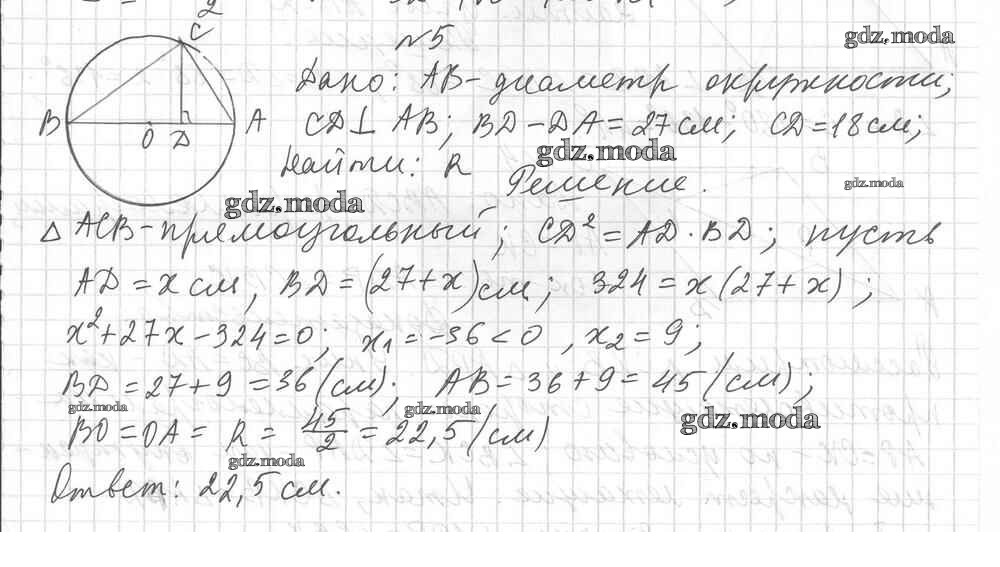 №5
Дано: AB - диаметр окружности;
CD ⊥ AB; BD - DA = 27 см; CD = 18 см;
Найти: R
Решение.
△ ACB - прямоугольный; CD² = AD · BD; пусть
AD = x см, BD = (27 + x) см; 324 = x (27 + x);
x² + 27x - 324 = 0; x₁ = -36 < 0, x₂ = 9;
BD = 27 + 9 = 36 (см); AB = 36 + 9 = 45 (см);
BO = OA = R = 45/2 = 22,5 (см)
Ответ: 22,5 см.
C
B
A
O
D
gdz.moda
gdz.moda
gdz.moda
gdz.moda
gdz.moda
gdz.moda
gdz.moda
gdz.moda